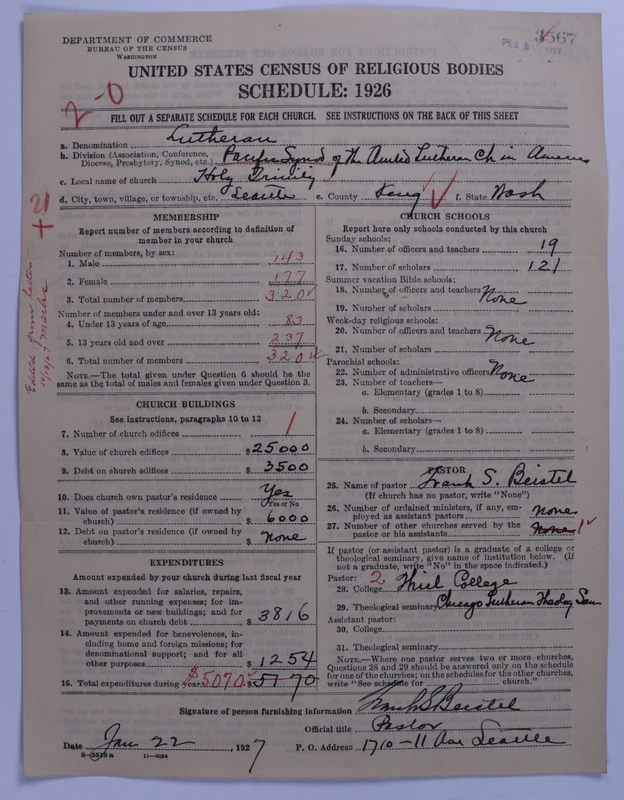 DEPARTMENT OF COMMERCE
BUREAU OF THE CENSUS
WASHINGTON
FEB 5 1927
3567
UNITED STATES CENSUS OF RELIGIOUS BODIES
SCHEDULE: 1926
2-0
FILL OUT A SEPARATE SCHEDULE FOR EACH CHURCH. SEE INSTRUCTIONS ON THE BACK OF THIS SHEET
a. Denomination Lutheran
b. Division (Association, Conference, Diocese, Presbytery, Synod, etc.) Pacific Synod of the United Lutheran Ch. in America
c. Local name of church Holy Trinity
d. City, town, village, or township, etc. Seattle e. County King f. State Wash
MEMBERSHIP
Report number of members according to definition of
member in your church
Number of members, by sex:
1. Male 143
2. Female 177
3. Total number of members 320
Number of members under and over 13 years old:
4. Under 13 years of age 83
5. 13 years old and over 237
6. Total number of members 320
NOTE.—The total given under Question 6 should be the
same as the total of males and females given under Question 3.
21
+
Edited from letter
CHURCH BUILDINGS
See instructions, paragraphs 10 to 12
7. Number of church edifices 1
8. Value of church edifices $25000
9. Debt on church edifices $3500
10. Does church own pastor's residence Yes
Yes or No
11. Value of pastor's residence (if owned by
church) $6000
12. Debt on pastor's residence (if owned by
church) $None
EXPENDITURES
Amount expended by your church during last fiscal year
13. Amount expended for salaries, repairs,
and other running expenses; for im-
provements or new buildings; and for
payments on church debt $3816
14. Amount expended for benevolences, in-
cluding home and foreign missions; for
denominational support; and for all
other purposes $1254
15. Total expenditures during year $5070 $5170
CHURCH SCHOOLS
Report here only schools conducted by this church
Sunday schools:
16. Number of officers and teachers 19
17. Number of scholars 121
Summer vacation Bible schools:
18. Number of officers and teachers None
19. Number of scholars
Week-day religious schools:
20. Number of officers and teachers None
21. Number of scholars
Parochial schools:
22. Number of administrative officers None
23. Number of teachers—
a. Elementary (grades 1 to 8)
b. Secondary
24. Number of scholars—
a. Elementary (grades 1 to 8)
b. Secondary
PASTOR
25. Name of pastor Frank S. Beistel
(If church has no pastor, write "None")
26. Number of ordained ministers, if any, em-
ployed as assistant pastors None
27. Number of other churches served by the
pastor or his assistants None 1
If pastor (or assistant pastor) is a graduate of a college or
theological seminary, give name of institution below. (If
not a graduate, write "No" in the space indicated.)
Pastor: 2
28. College Thiel College
29. Theological seminary Chicago Lutheran Theolog Sem
Assistant pastor:
30. College
31. Theological seminary
NOTE.—Where one pastor serves two or more churches,
Questions 28 and 29 should be answered only on the schedule
for one of the churches; on the schedules for the other churches,
write "See schedule for church."
Signature of person furnishing information Frank S Beistel
Official title Pastor
Date Jan 22, 1927 P. O. Address 1710-11 Ave Seattle
8-5518a 11-9084